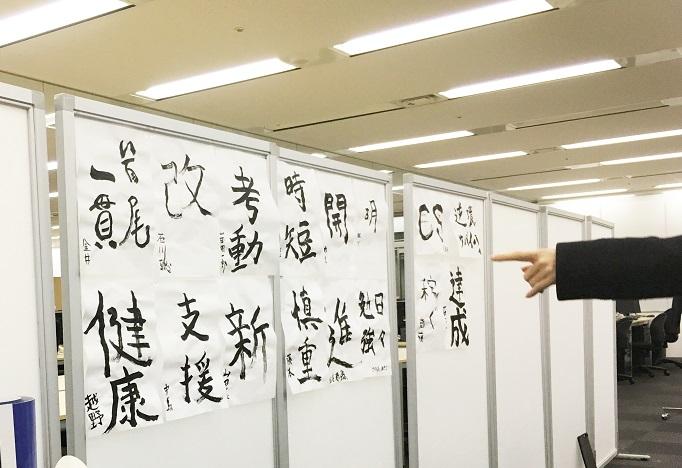 首尾
一貫
金井
改
石川
考動
時短
開
明
CS
健康
越野
支援
新
慎重
進
日々
勉強
稼ぐ
達成